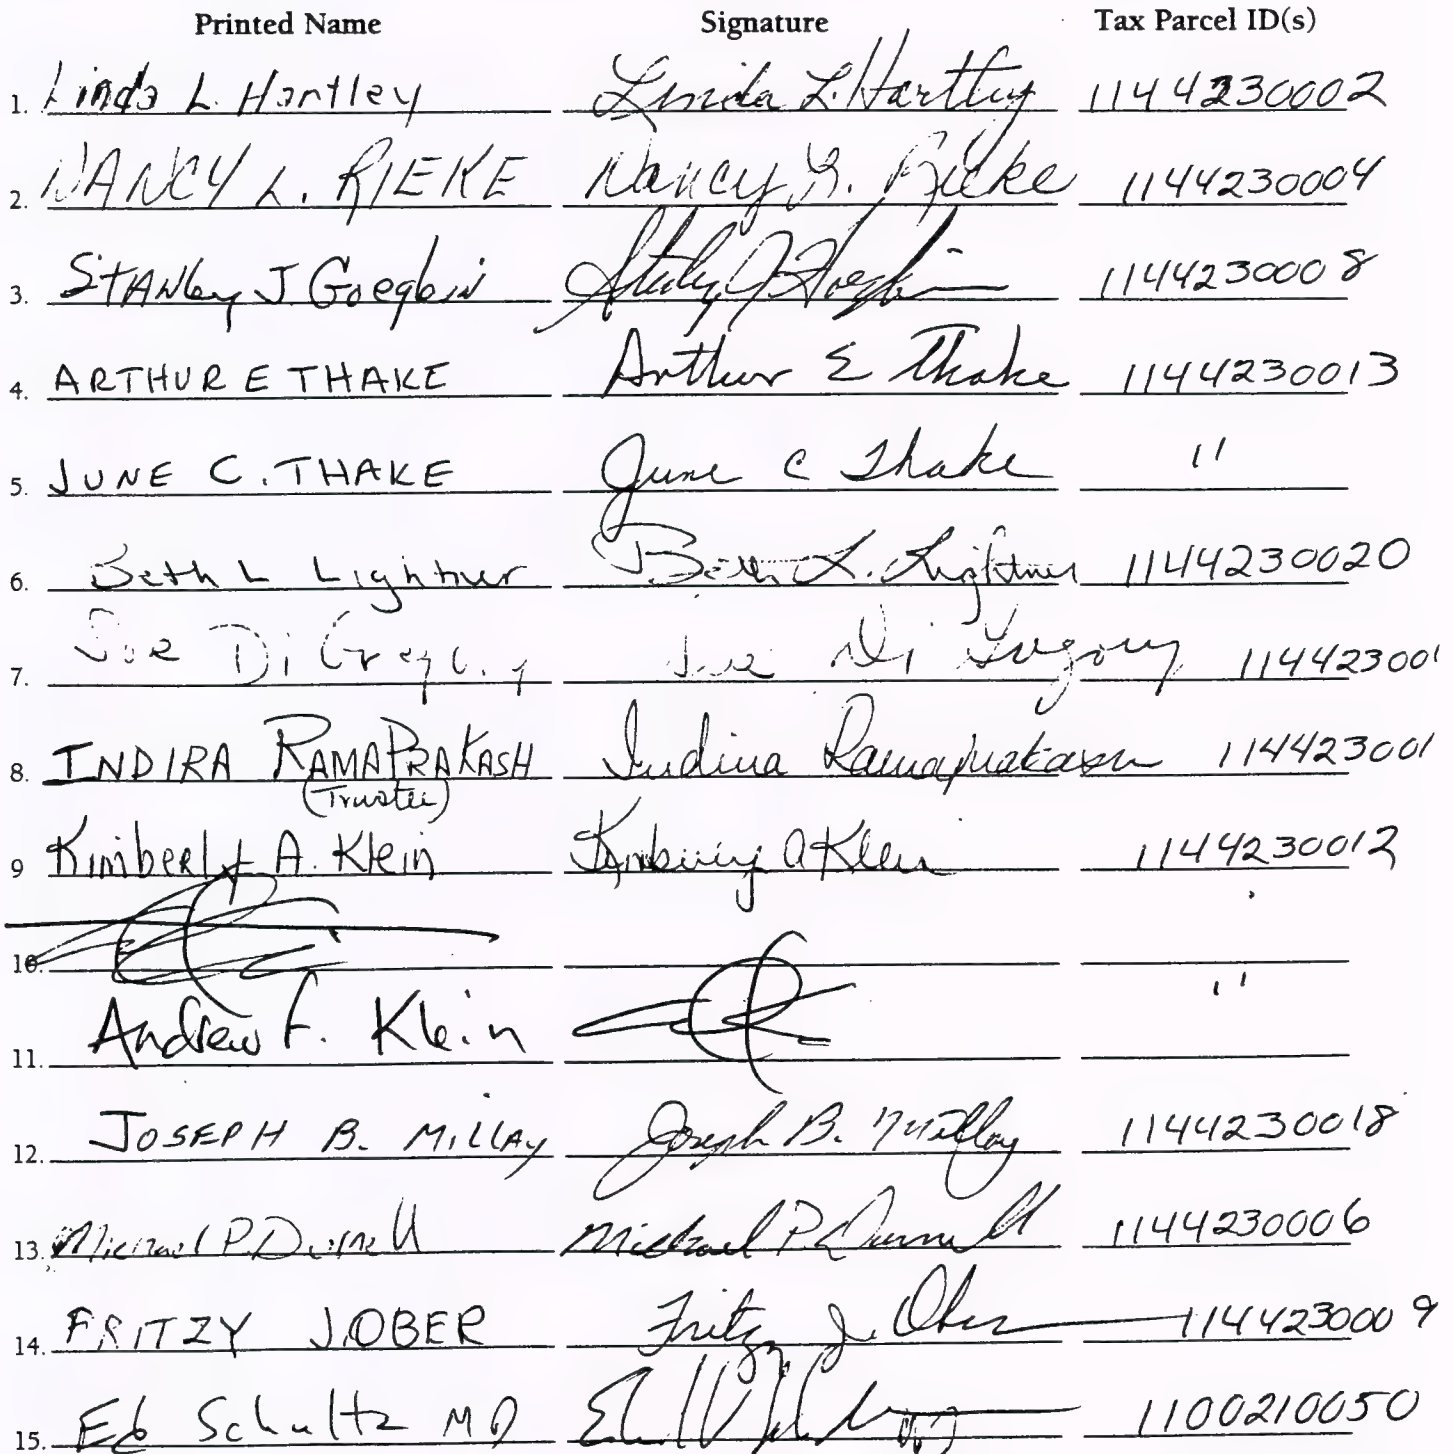 Printed Name Signature Tax Parcel ID(s)
1. Linda L. Hartley Linda L. Hartley 1144230002
2. NANCY L. RIEKE Nancy L. Rieke 1144230004
3. STANley J. Goegbin 1144230008
4. ARTHUR E THAKE Arthur E Thake 1144230013
5. JUNE C. THAKE June C Thake "
6. Beth L Lightner Beth L. Lightner 1144230020
7. Di Gregory Di Gregory 114423001
8. INDIRA RAMAPRAKASH Indira Ramaprakash 114423001
(Trustee)
9 Kimberly A. Klein Kimberly A Klein 1144230012
10.
11. Andrew F. Klein "
12. JOSEPH B. MILLAY Joseph B. Millay 1144230018
13. Michael P. Durnell Michael P. Durnell 1144230006
14. FRITZY J. OBER Fritzy J. Ober 1144230009
15. Ed Schultz MD 1100210050